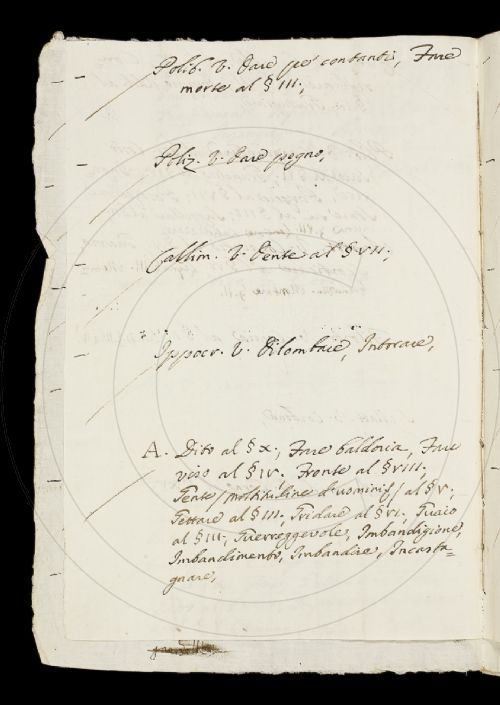 Polib. V. Dare pe' contanti, Fare
morte al § III;
Poliz. V. Dare pegno,
Callim. V. Gente al § VII;
Ippocr. V. Dilombare, Intorare,
A. Dito al § X., Fare baldoria, Fare
viso al § IV. Fronte al § VIII.
Gente / moltitudine d'uomini / al § V,
Gettare al § III, Gridare al § VI,
al § III, Guerreggevole, Imbandigione,
Imbandimento, Imbandire, Incasta=
gnare,